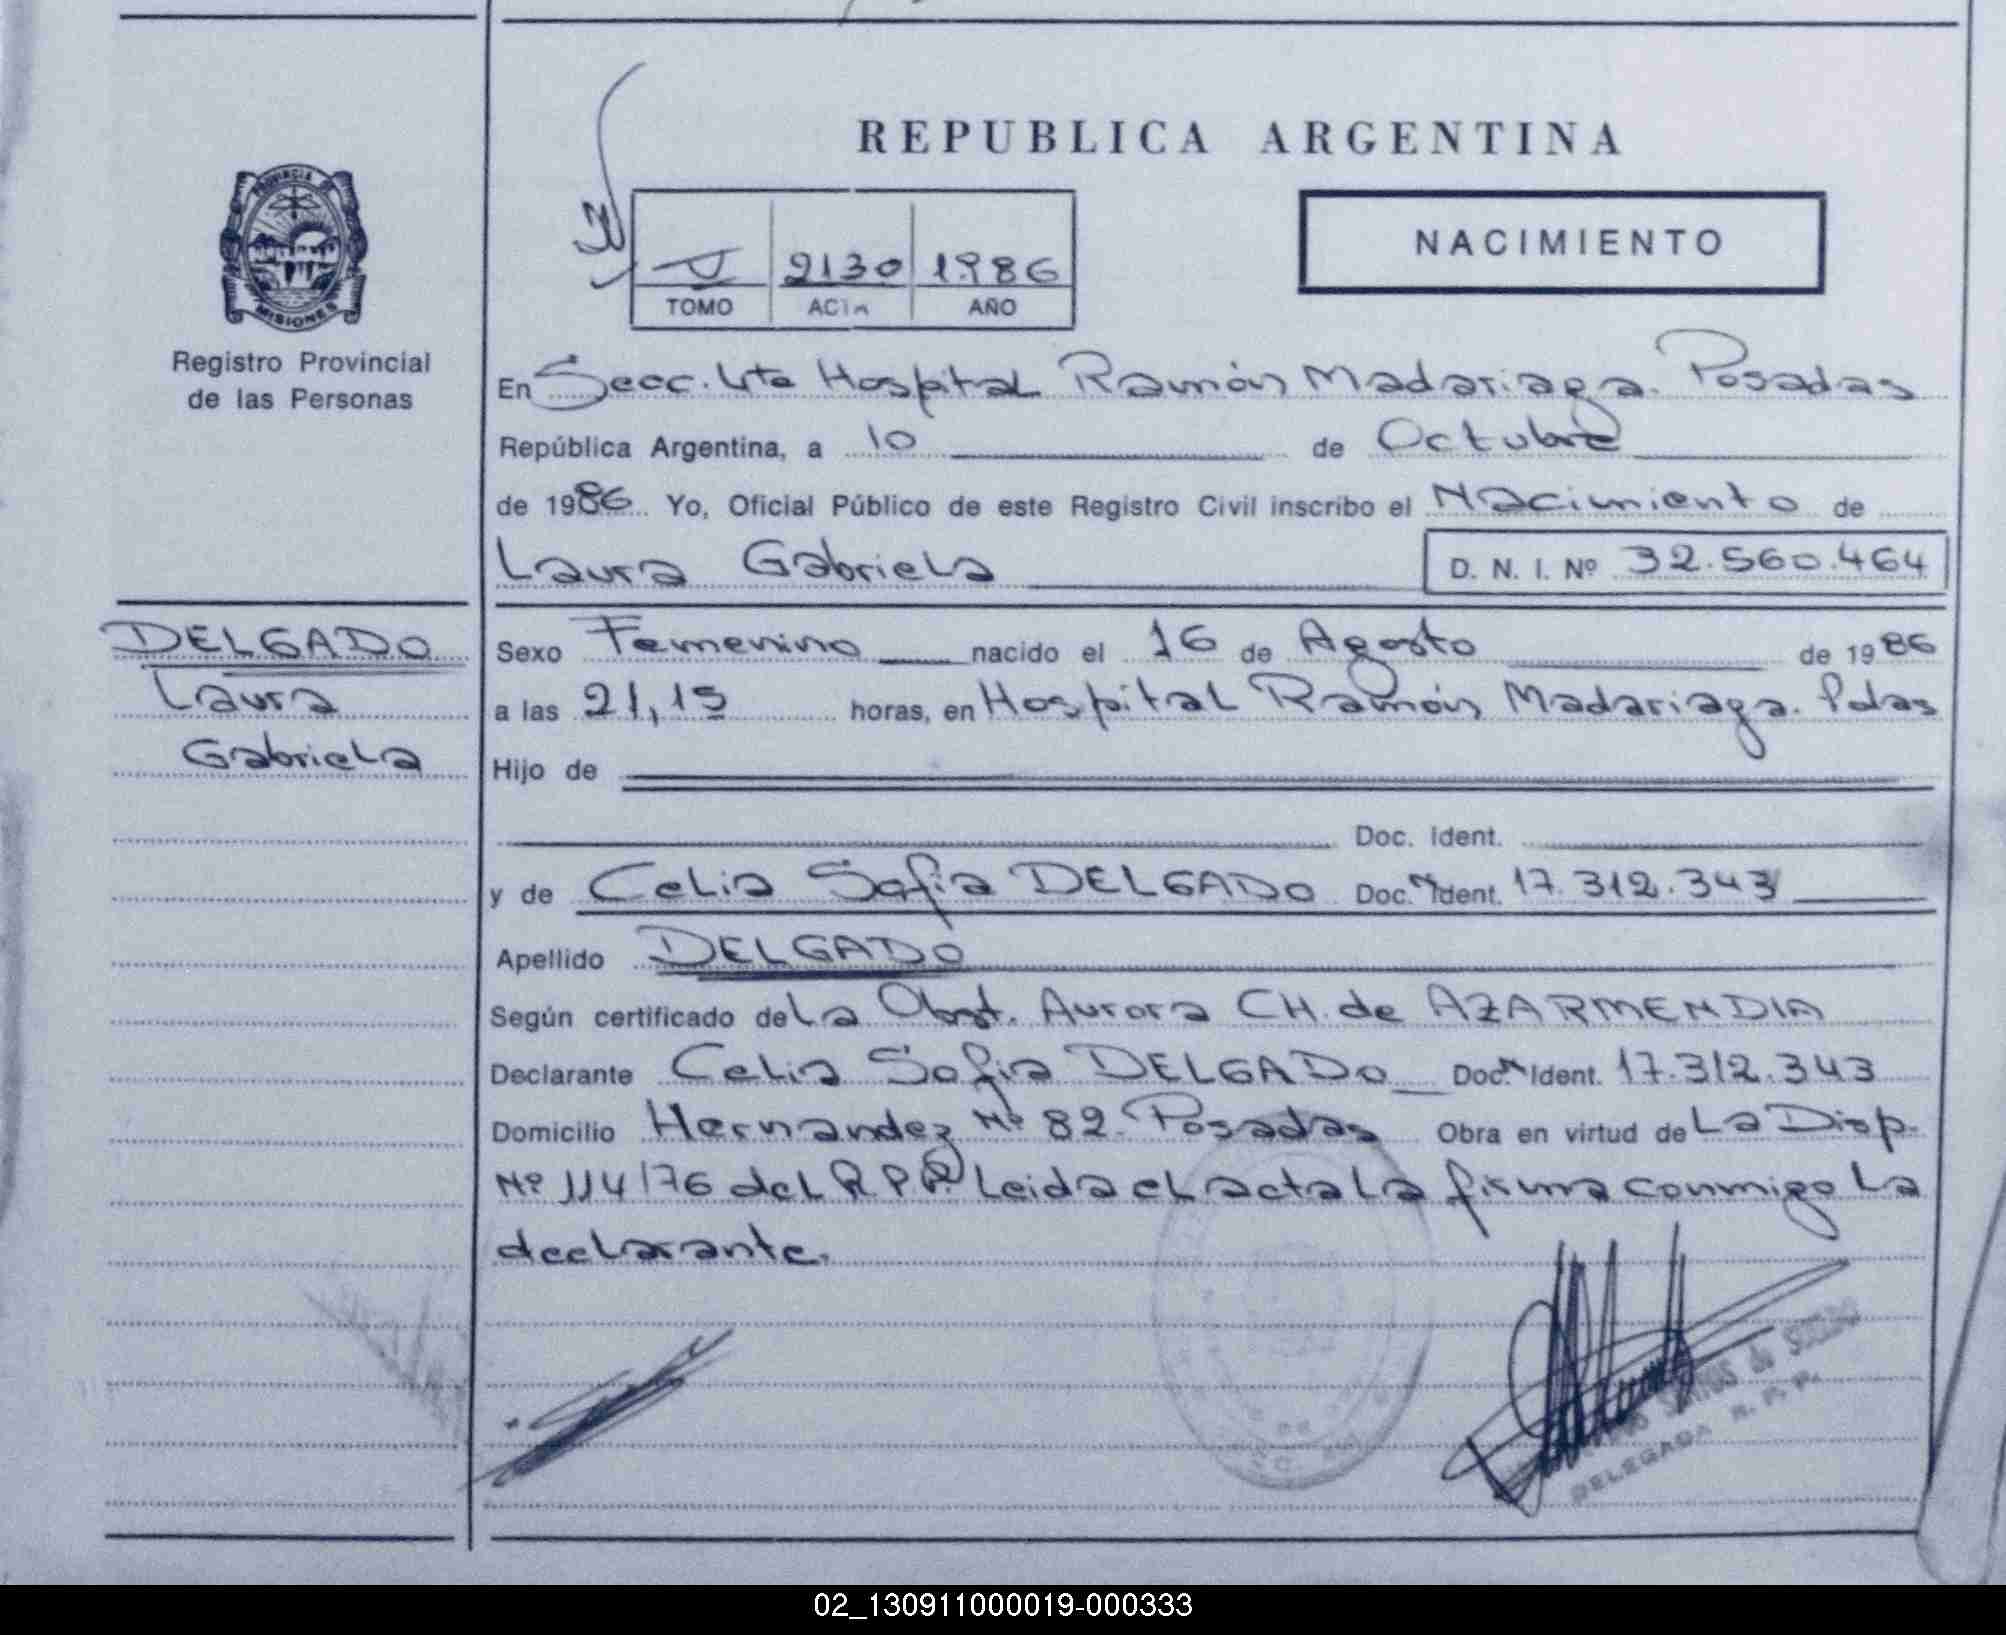 REPUBLICA ARGENTINA
PROVINCIA DE
MISIONES
Registro Provincial
de las Personas
NACIMIENTO
V 2130 1986
TOMO ACTA AÑO
En Secc. 4ta Hospital Ramón Madariaga. Posadas
República Argentina, a 10 de Octubre
de 1986 Yo, Oficial Público de este Registro Civil inscribo el Nacimiento de
Laura Gabriela D. N. I. Nº 32.560.464
DELGADO
Laura
Gabriela
Sexo Femenino nacido el 16 de Agosto de 1986
a las 21,15 horas, en Hospital Ramón Madariaga. Pdas
Hijo de
Doc. Ident.
y de Celia Sofia DELGADO Doc. Ident. 17.312.343
Apellido DELGADO
Según certificado de La Obst. Aurora CH. de AZARMENDIA
Declarante Celia Sofia DELGADO Doc. Ident. 17.312.343
Domicilio Hernandez Nº 82. Posadas Obra en virtud de La Disp.
Nº 114/76 del R.P.P. Leida el acta la firma conmigo la
declarante.
DELEGADA R. P. P.
02_130911000019-000333